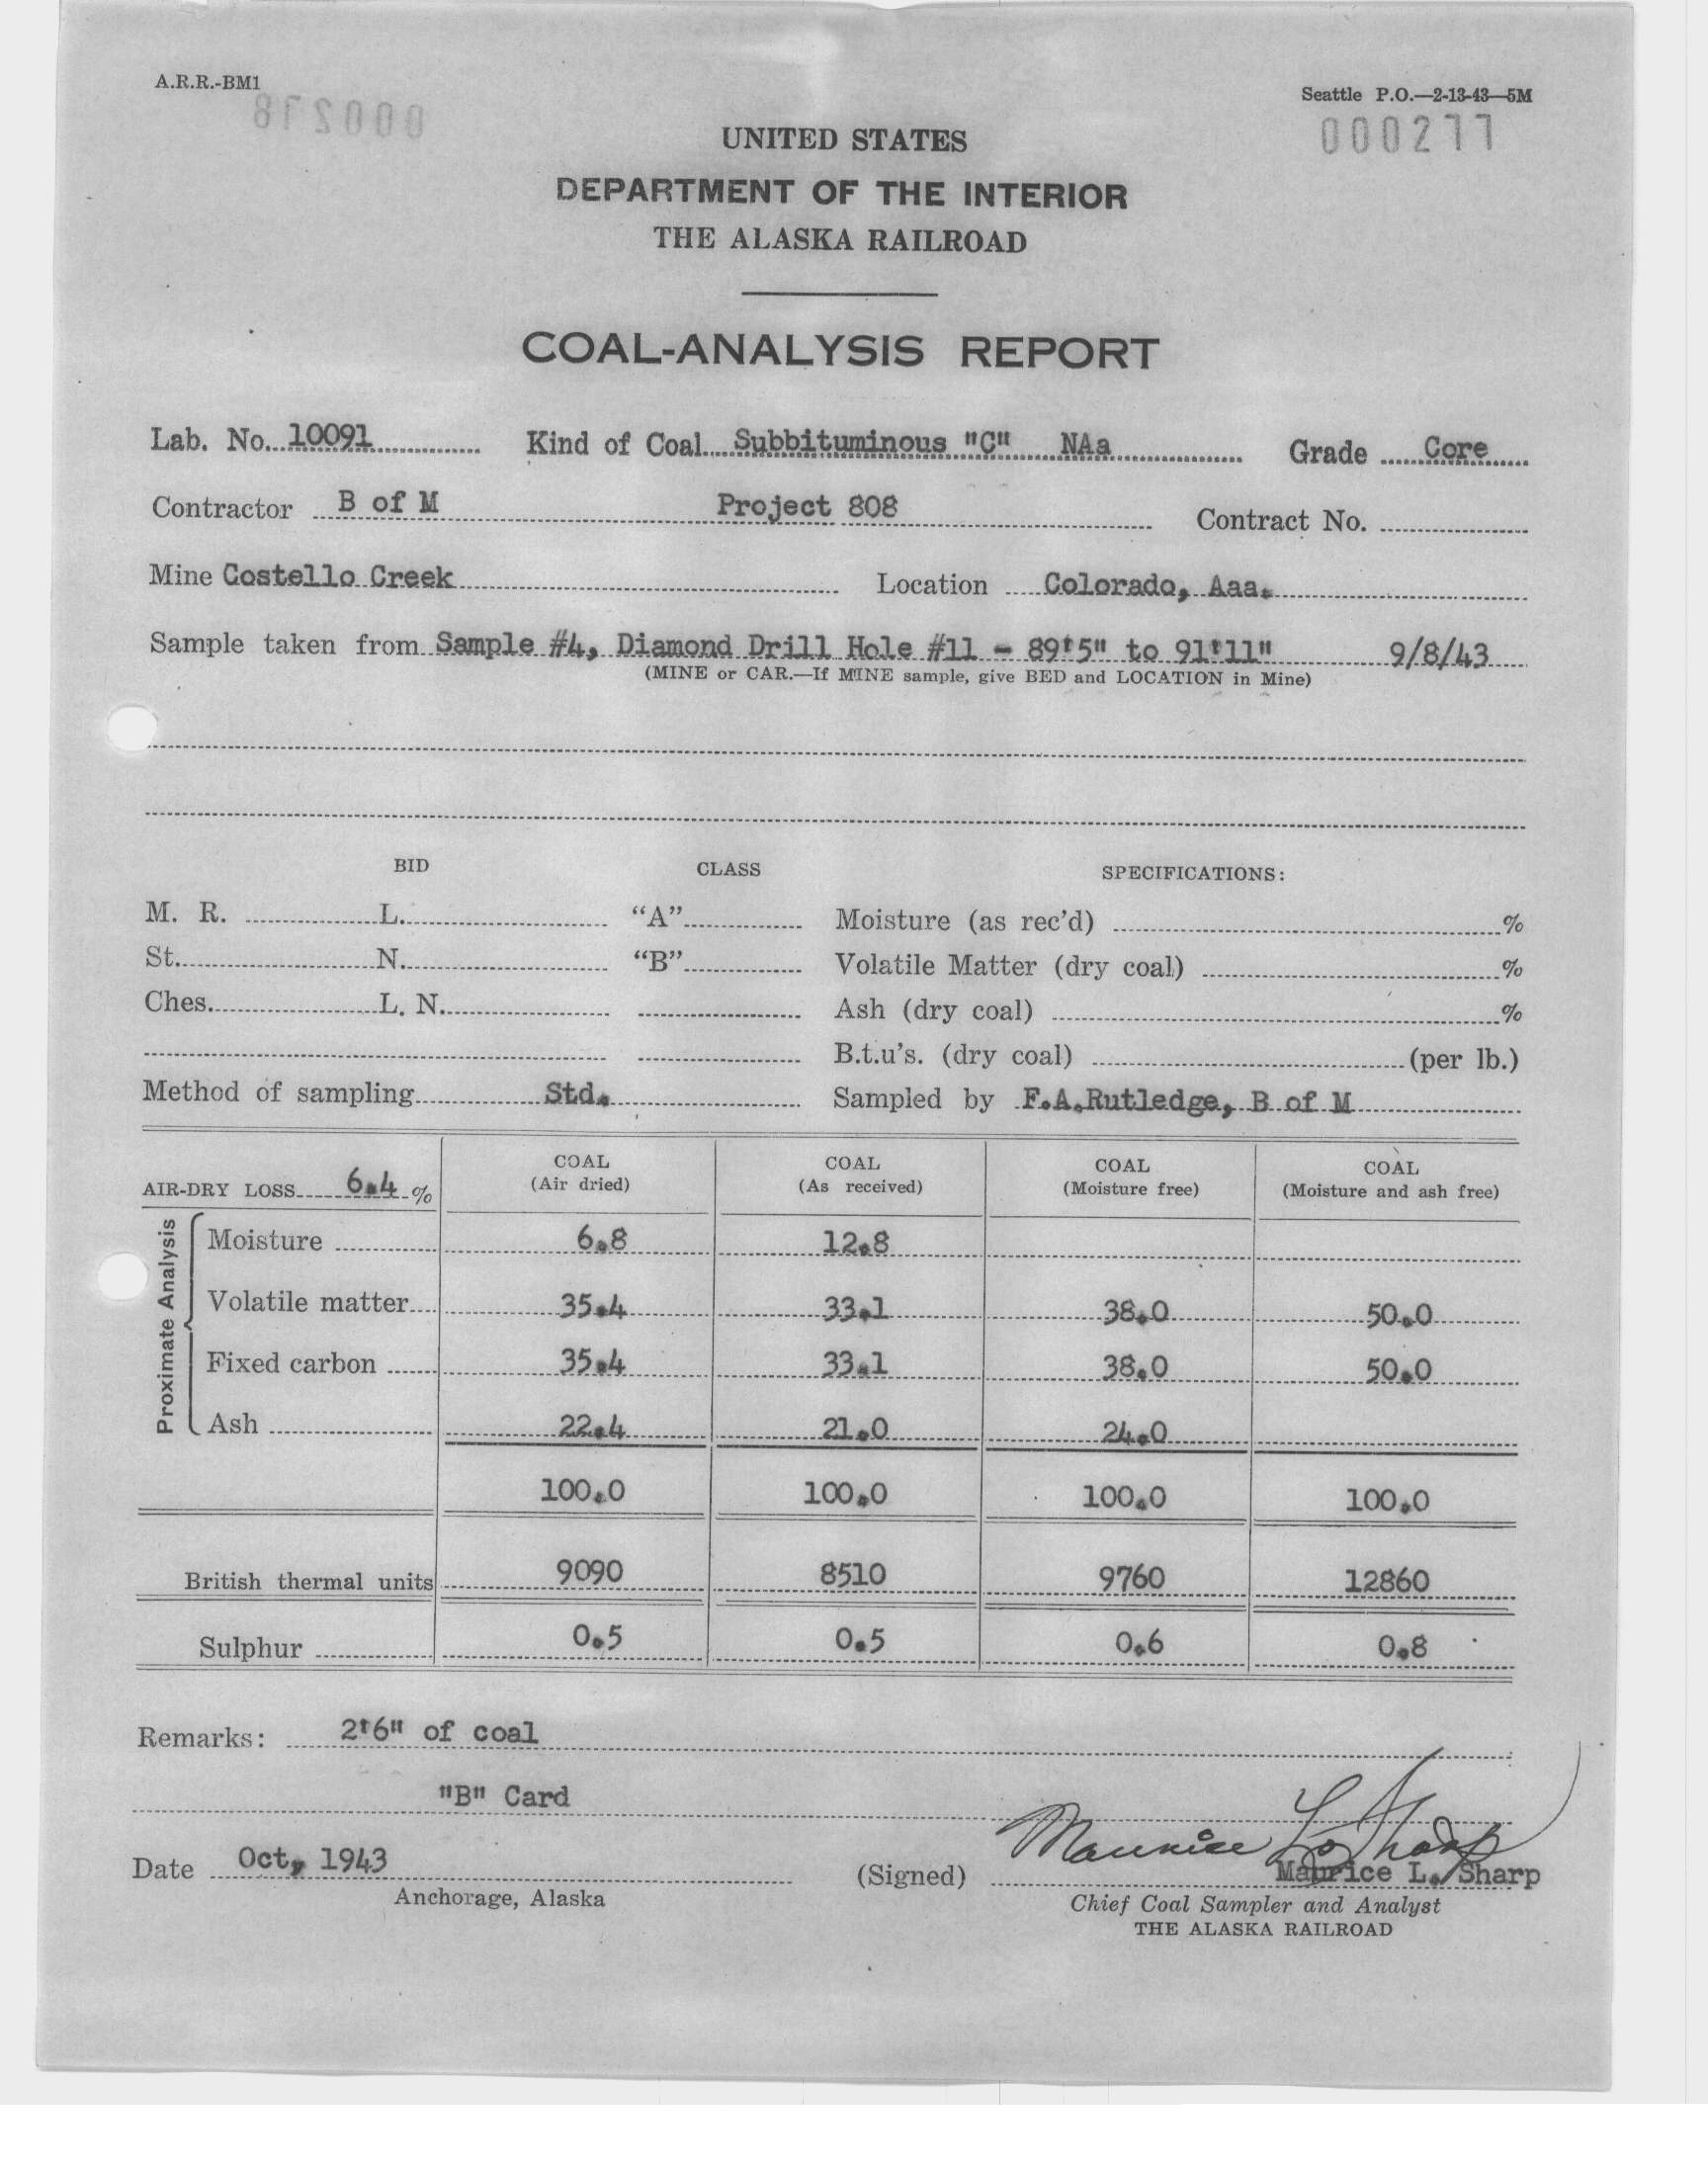 A.R.R.-BM1
Seattle P.O.—2-13-43—5M
000278
000277
UNITED STATES
DEPARTMENT OF THE INTERIOR
THE ALASKA RAILROAD
COAL-ANALYSIS REPORT
Lab. No. 10091 Kind of Coal Subbituminous "C" NAa Grade Core
Contractor B of M Project 808 Contract No.
Mine Costello Creek Location Colorado, Aaa.
Sample taken from Sample #4, Diamond Drill Hole #11 - 89'5" to 91'11" 9/8/43
(MINE or CAR.—If MINE sample, give BED and LOCATION in Mine)
BID CLASS SPECIFICATIONS:
M. R. L. "A" Moisture (as rec'd) %
St. N. "B" Volatile Matter (dry coal) %
Ches. L. N. Ash (dry coal) %
B.t.u's. (dry coal) (per lb.)
Method of sampling Std. Sampled by F.A.Rutledge, B of M
AIR-DRY LOSS 6.4 % COAL (Air dried) COAL (As received) COAL (Moisture free) COAL (Moisture and ash free)
Proximate Analysis
Moisture 6.8 12.8
Volatile matter 35.4 33.1 38.0 50.0
Fixed carbon 35.4 33.1 38.0 50.0
Ash 22.4 21.0 24.0
100.0 100.0 100.0 100.0
British thermal units 9090 8510 9760 12860
Sulphur 0.5 0.5 0.6 0.8
Remarks: 2'6" of coal
"B" Card
Maurice L. Sharp
Date Oct, 1943 (Signed) Maurice L. Sharp
Anchorage, Alaska
Chief Coal Sampler and Analyst
THE ALASKA RAILROAD